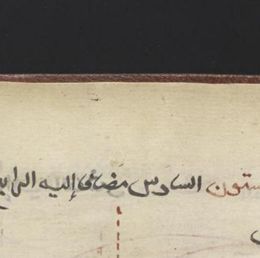 ستون السادس مضاعى إليه الرابع